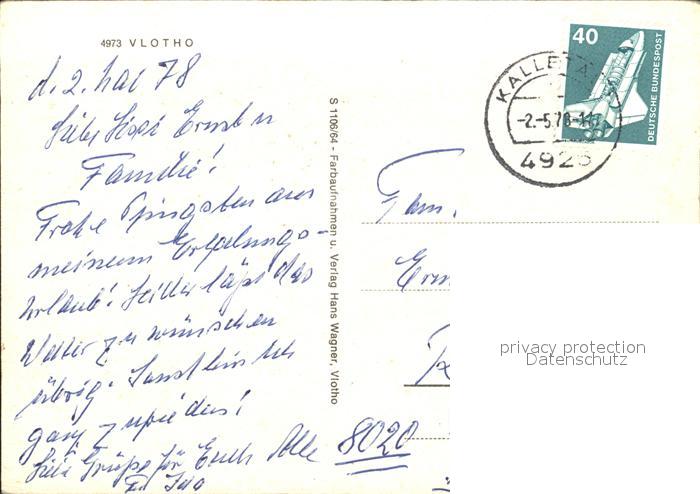 4973 VLOTHO
d. 2. Mai 78
Familie!
Frohe Pfingsten aus
meinem Erholungs-
urlaub! Leider läßt das
Wetter zu wünschen
übrig. Sonst bin ich
ganz zufrieden!
Liebe Grüße für Euch Alle
S 1106/64 - Farbaufnahmen u. Verlag Hans Wagner, Vlotho
40
DEUTSCHE BUNDESPOST
KALLETAL
-2.-5.78-
492
Fam.
8020
privacy protection
Datenschutz